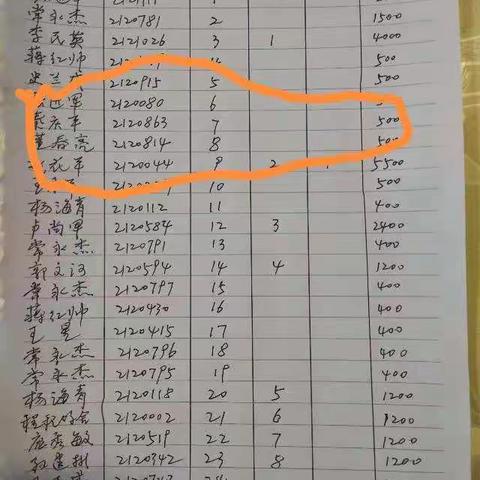 常永杰 2120781 2 1500
李民英 2121026 3 1 4000
蒋红帅 500
2120915 5 500
2120080 6
庆军 2120863 7 500
董春亮 2120814 8 500
花军 2120044 9 2 5500
10 500
杨海青 2120112 11 400
卢尚军 2120584 12 3 2400
常永杰 2120791 13 400
郭文河 2120594 14 4 1200
常永杰 2120797 15 400
蒋红帅 2120430 16 400
王星 2120415 17 400
常永杰 2120796 18 400
常永杰 2120795 19 400
杨海青 2120118 20 5 1200
程积好会 2120002 21 6 1200
应秀敏 2120519 22 7 1200
2120342 23 8 1200